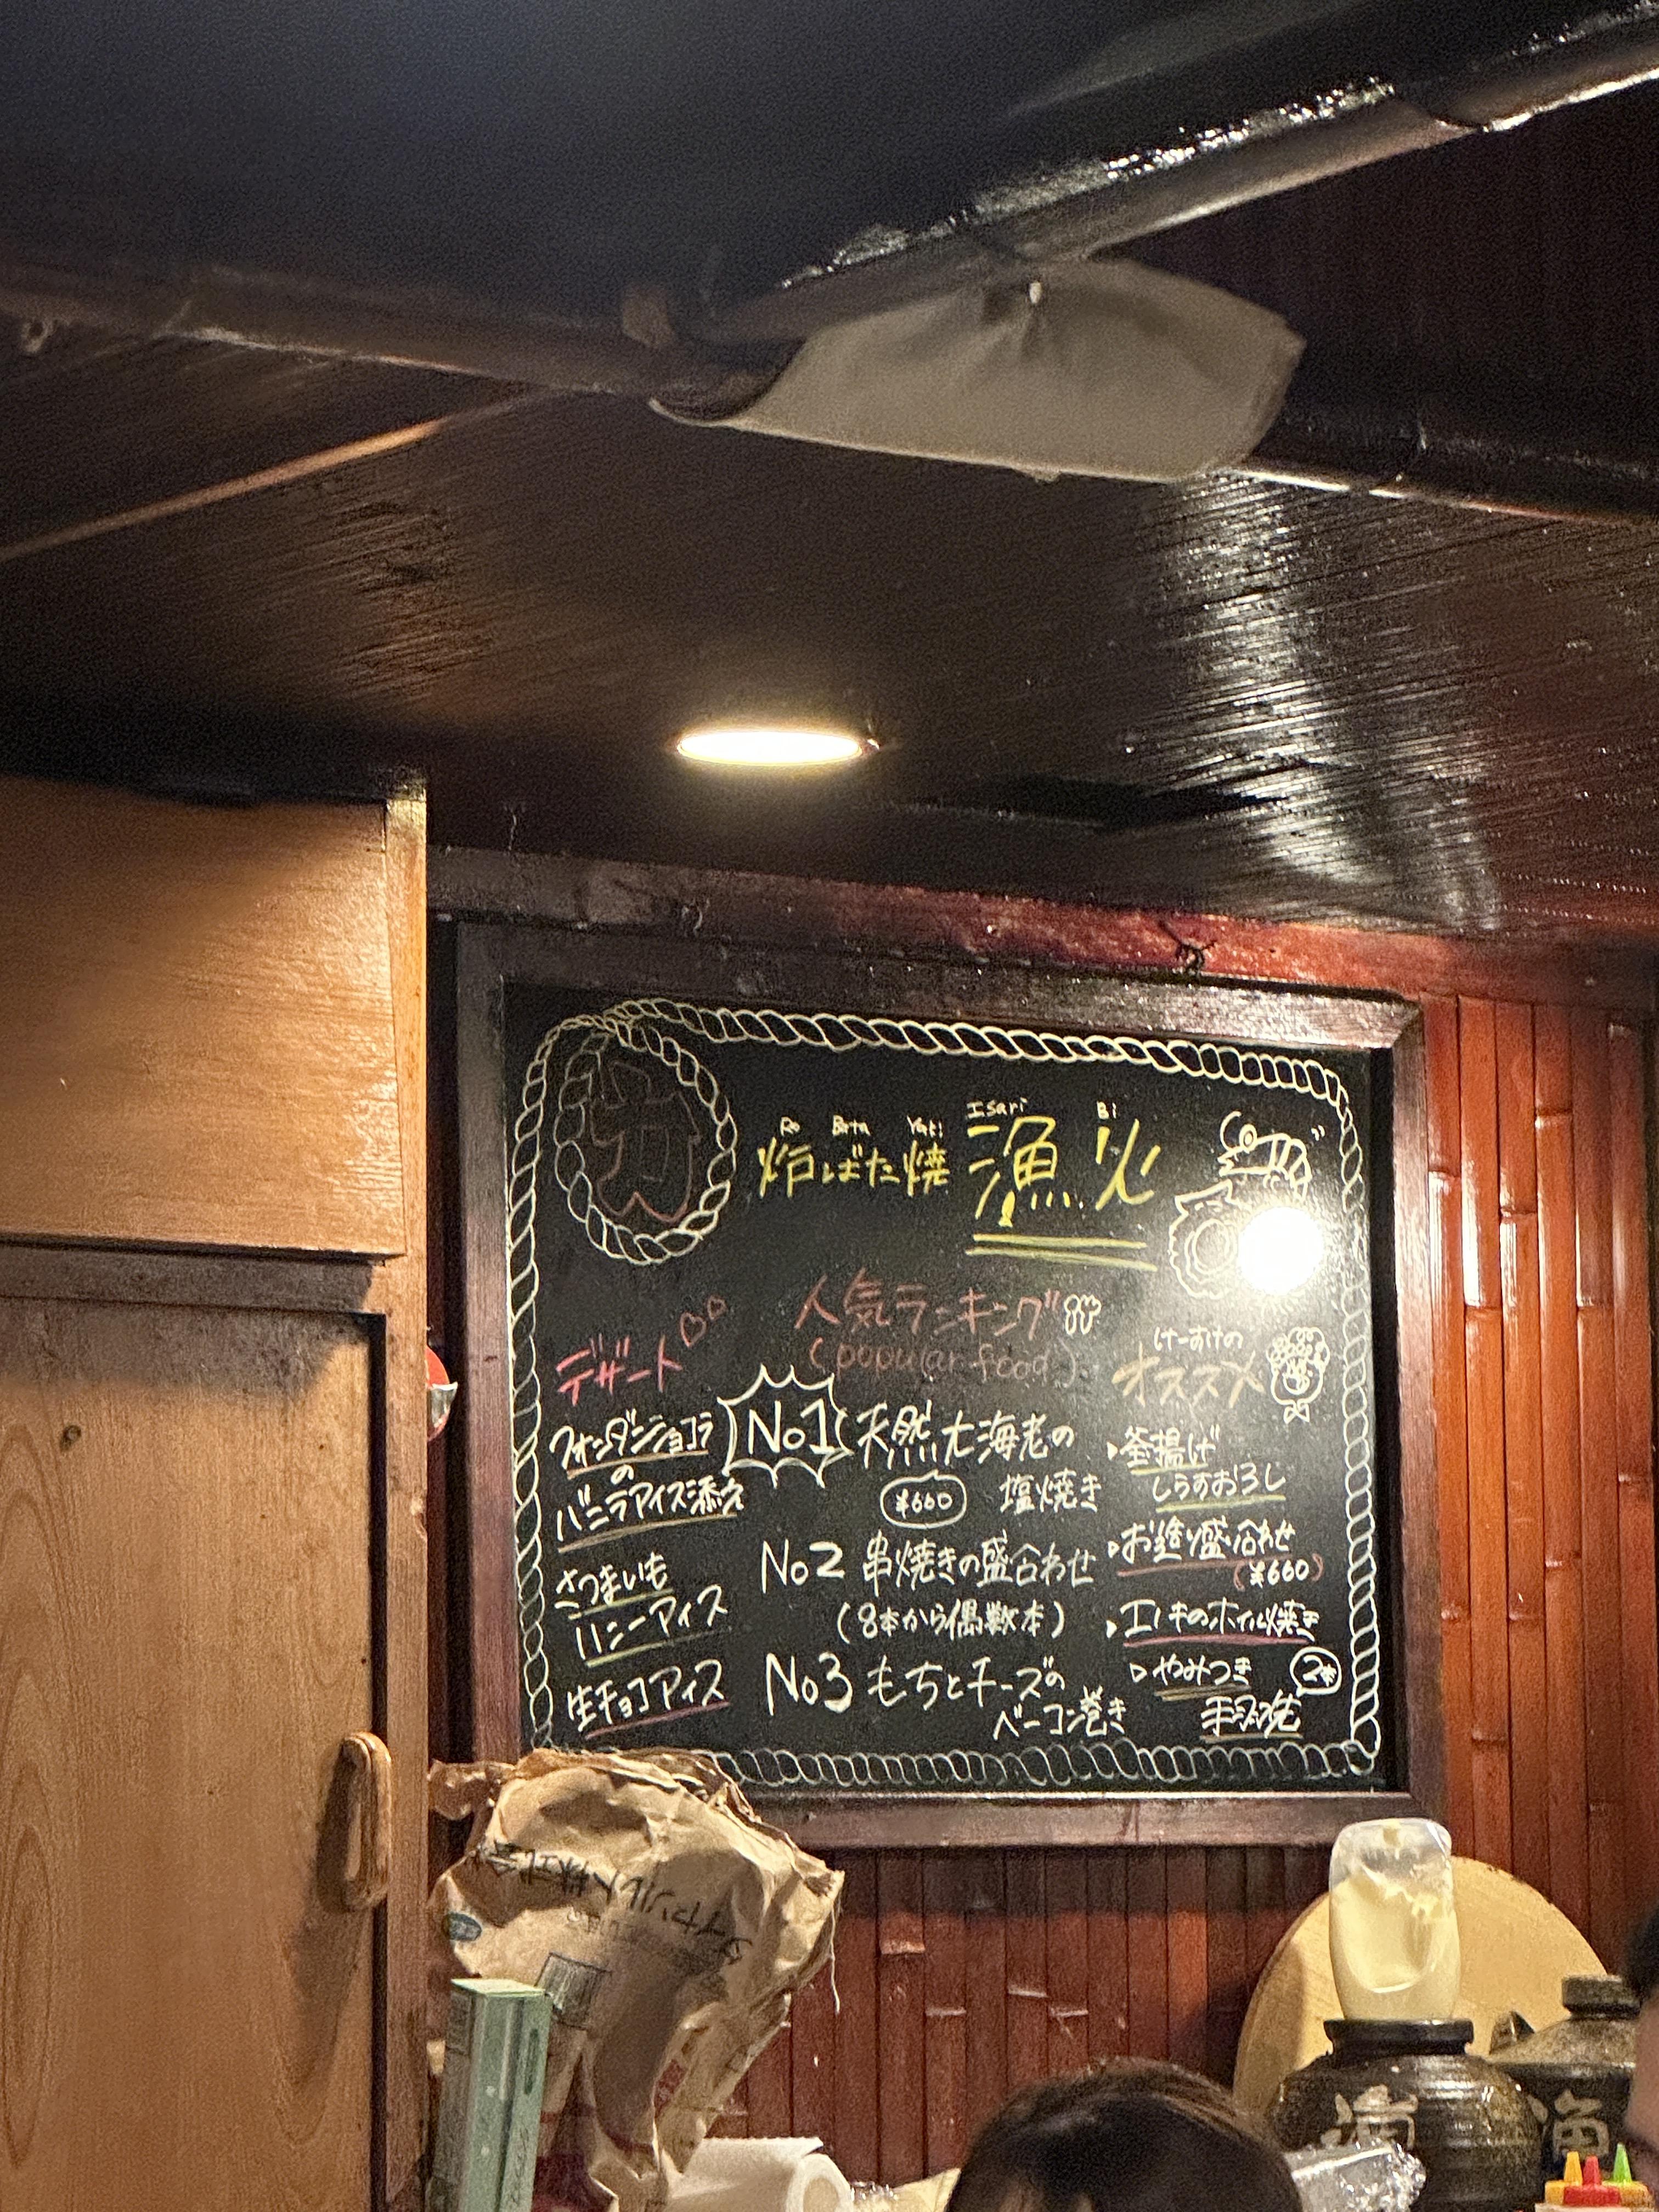 Ro Bata Yaki Isari Bi
炉ばた焼 漁火
デザート
フォンダンショコラ
の
バニラアイス添え
さつまいも
ハニーアイス
生チョコアイス
人気ランキング
(popular food)
No1 天然大海老の
¥660 塩焼き
No2 串焼きの盛合わせ
(8本から偶数本)
No3 もちとチーズの
ベーコン巻き
けーすけの
オススメ
釜揚げ
しらすおろし
お造り盛り合わせ
(¥660)
エノキのホイル焼き
やみつき
漁